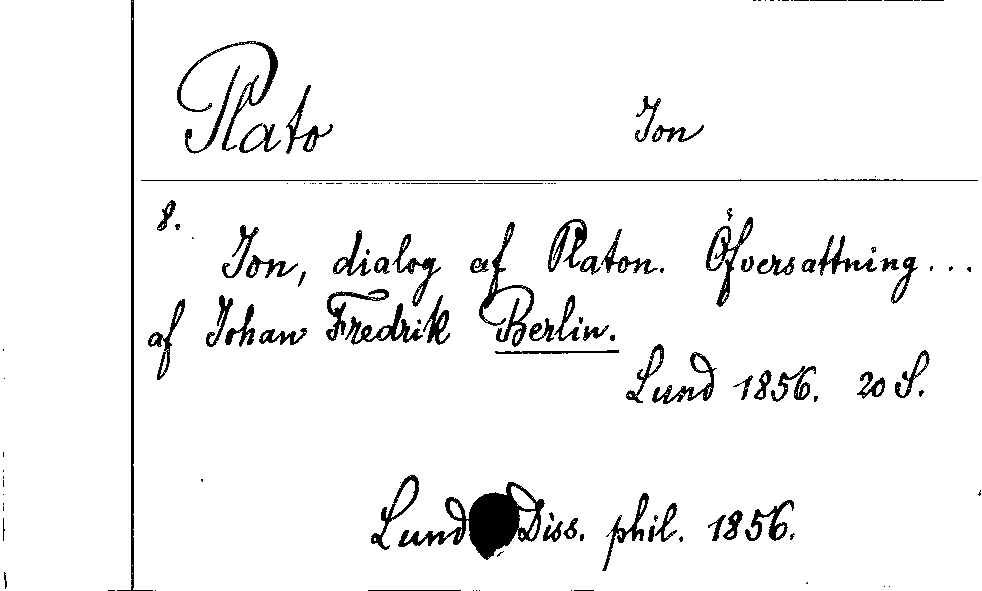 Plato Ion
8.
Ion, dialog af Platon. Öfversattning...
af Johan Fredrik Berlin.
Lund 1856. 20 S.
Lund Diss. phil. 1856.